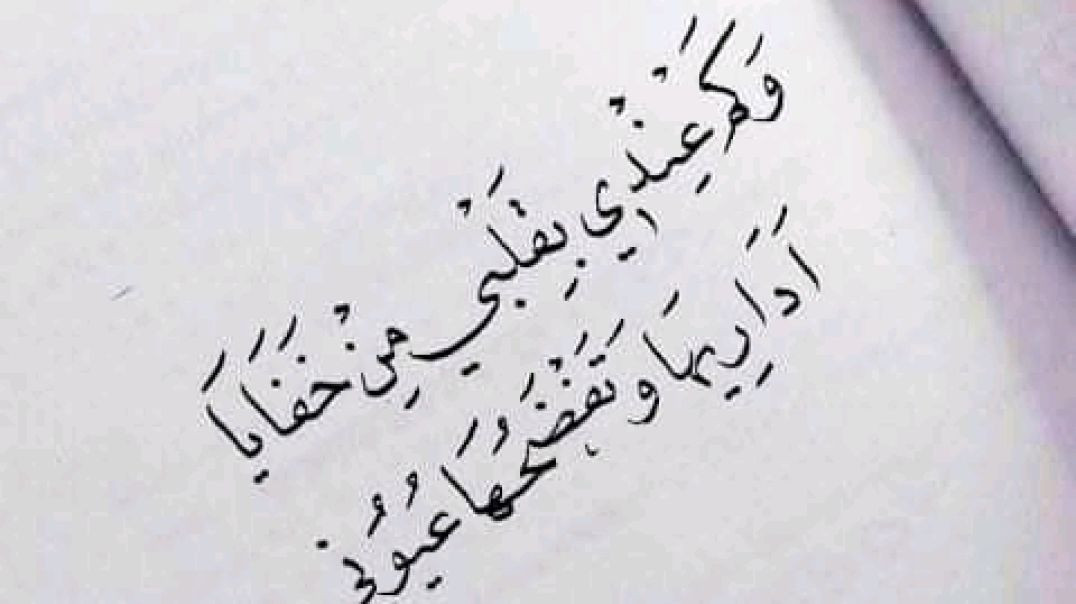 وَكَمْ عِنْدِي بِقَلْبِي مِنْ خَفَايَا
أَدَارِيهَا وَتَفْضَحُهَا عُيُونِي